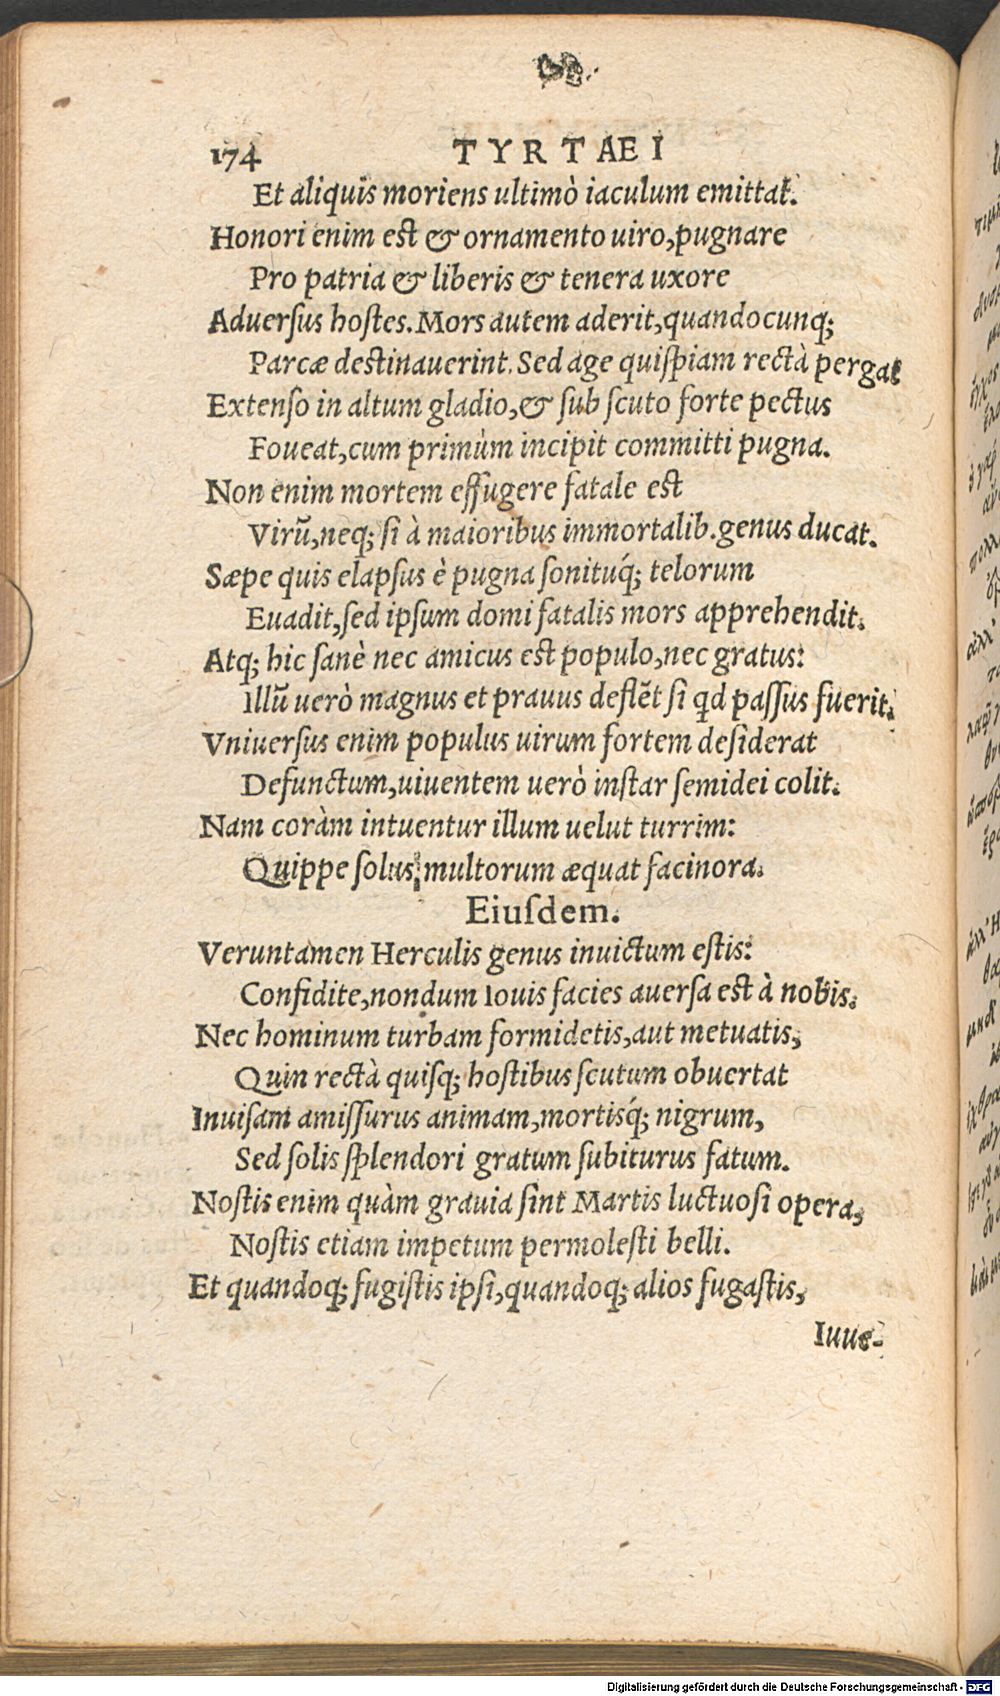 174 TYRTAEI
Et aliquis moriens ultimò iaculum emittat.
Honori enim est & ornamento uiro,pugnare
Pro patria & liberis & tenera uxore
Aduersus hostes.Mors autem aderit,quandocunq;
Parcæ destinauerint. Sed age quispiam rectà pergat
Extenso in altum gladio,& sub scuto forte pectus
Foueat,cum primùm incipit committi pugna.
Non enim mortem effugere fatale est
Virũ,neq; si à maioribus immortalib.genus ducat.
Sæpe quis elapsus è pugna sonituq́; telorum
Euadit,sed ipsum domi fatalis mors apprehendit.
Atq; hic sanè nec amicus est populo,nec gratus:
Illũ uerò magnus et prauus deflẽt si qd passus fuerit.
Vniuersus enim populus uirum fortem desiderat
Defunctum,uiuentem uerò instar semidei colit.
Nam coràm intuentur illum uelut turrim:
Quippe solus multorum æquat facinora.
Eiusdem.
Veruntamen Herculis genus inuictum estis:
Confidite,nondum Iouis facies auersa est à nobis.
Nec hominum turbam formidetis,aut metuatis,
Quin rectà quisq; hostibus scutum obuertat
Inuisam amissurus animam,mortisq́; nigrum,
Sed solis splendori gratum subiturus fatum.
Nostis enim quàm grauia sint Martis luctuosi opera,
Nostis etiam impetum permolesti belli.
Et quandoq; fugistis ipsi,quandoq; alios fugastis,
Iuue-
Digitalisierung gefördert durch die Deutsche Forschungsgemeinschaft - DFG